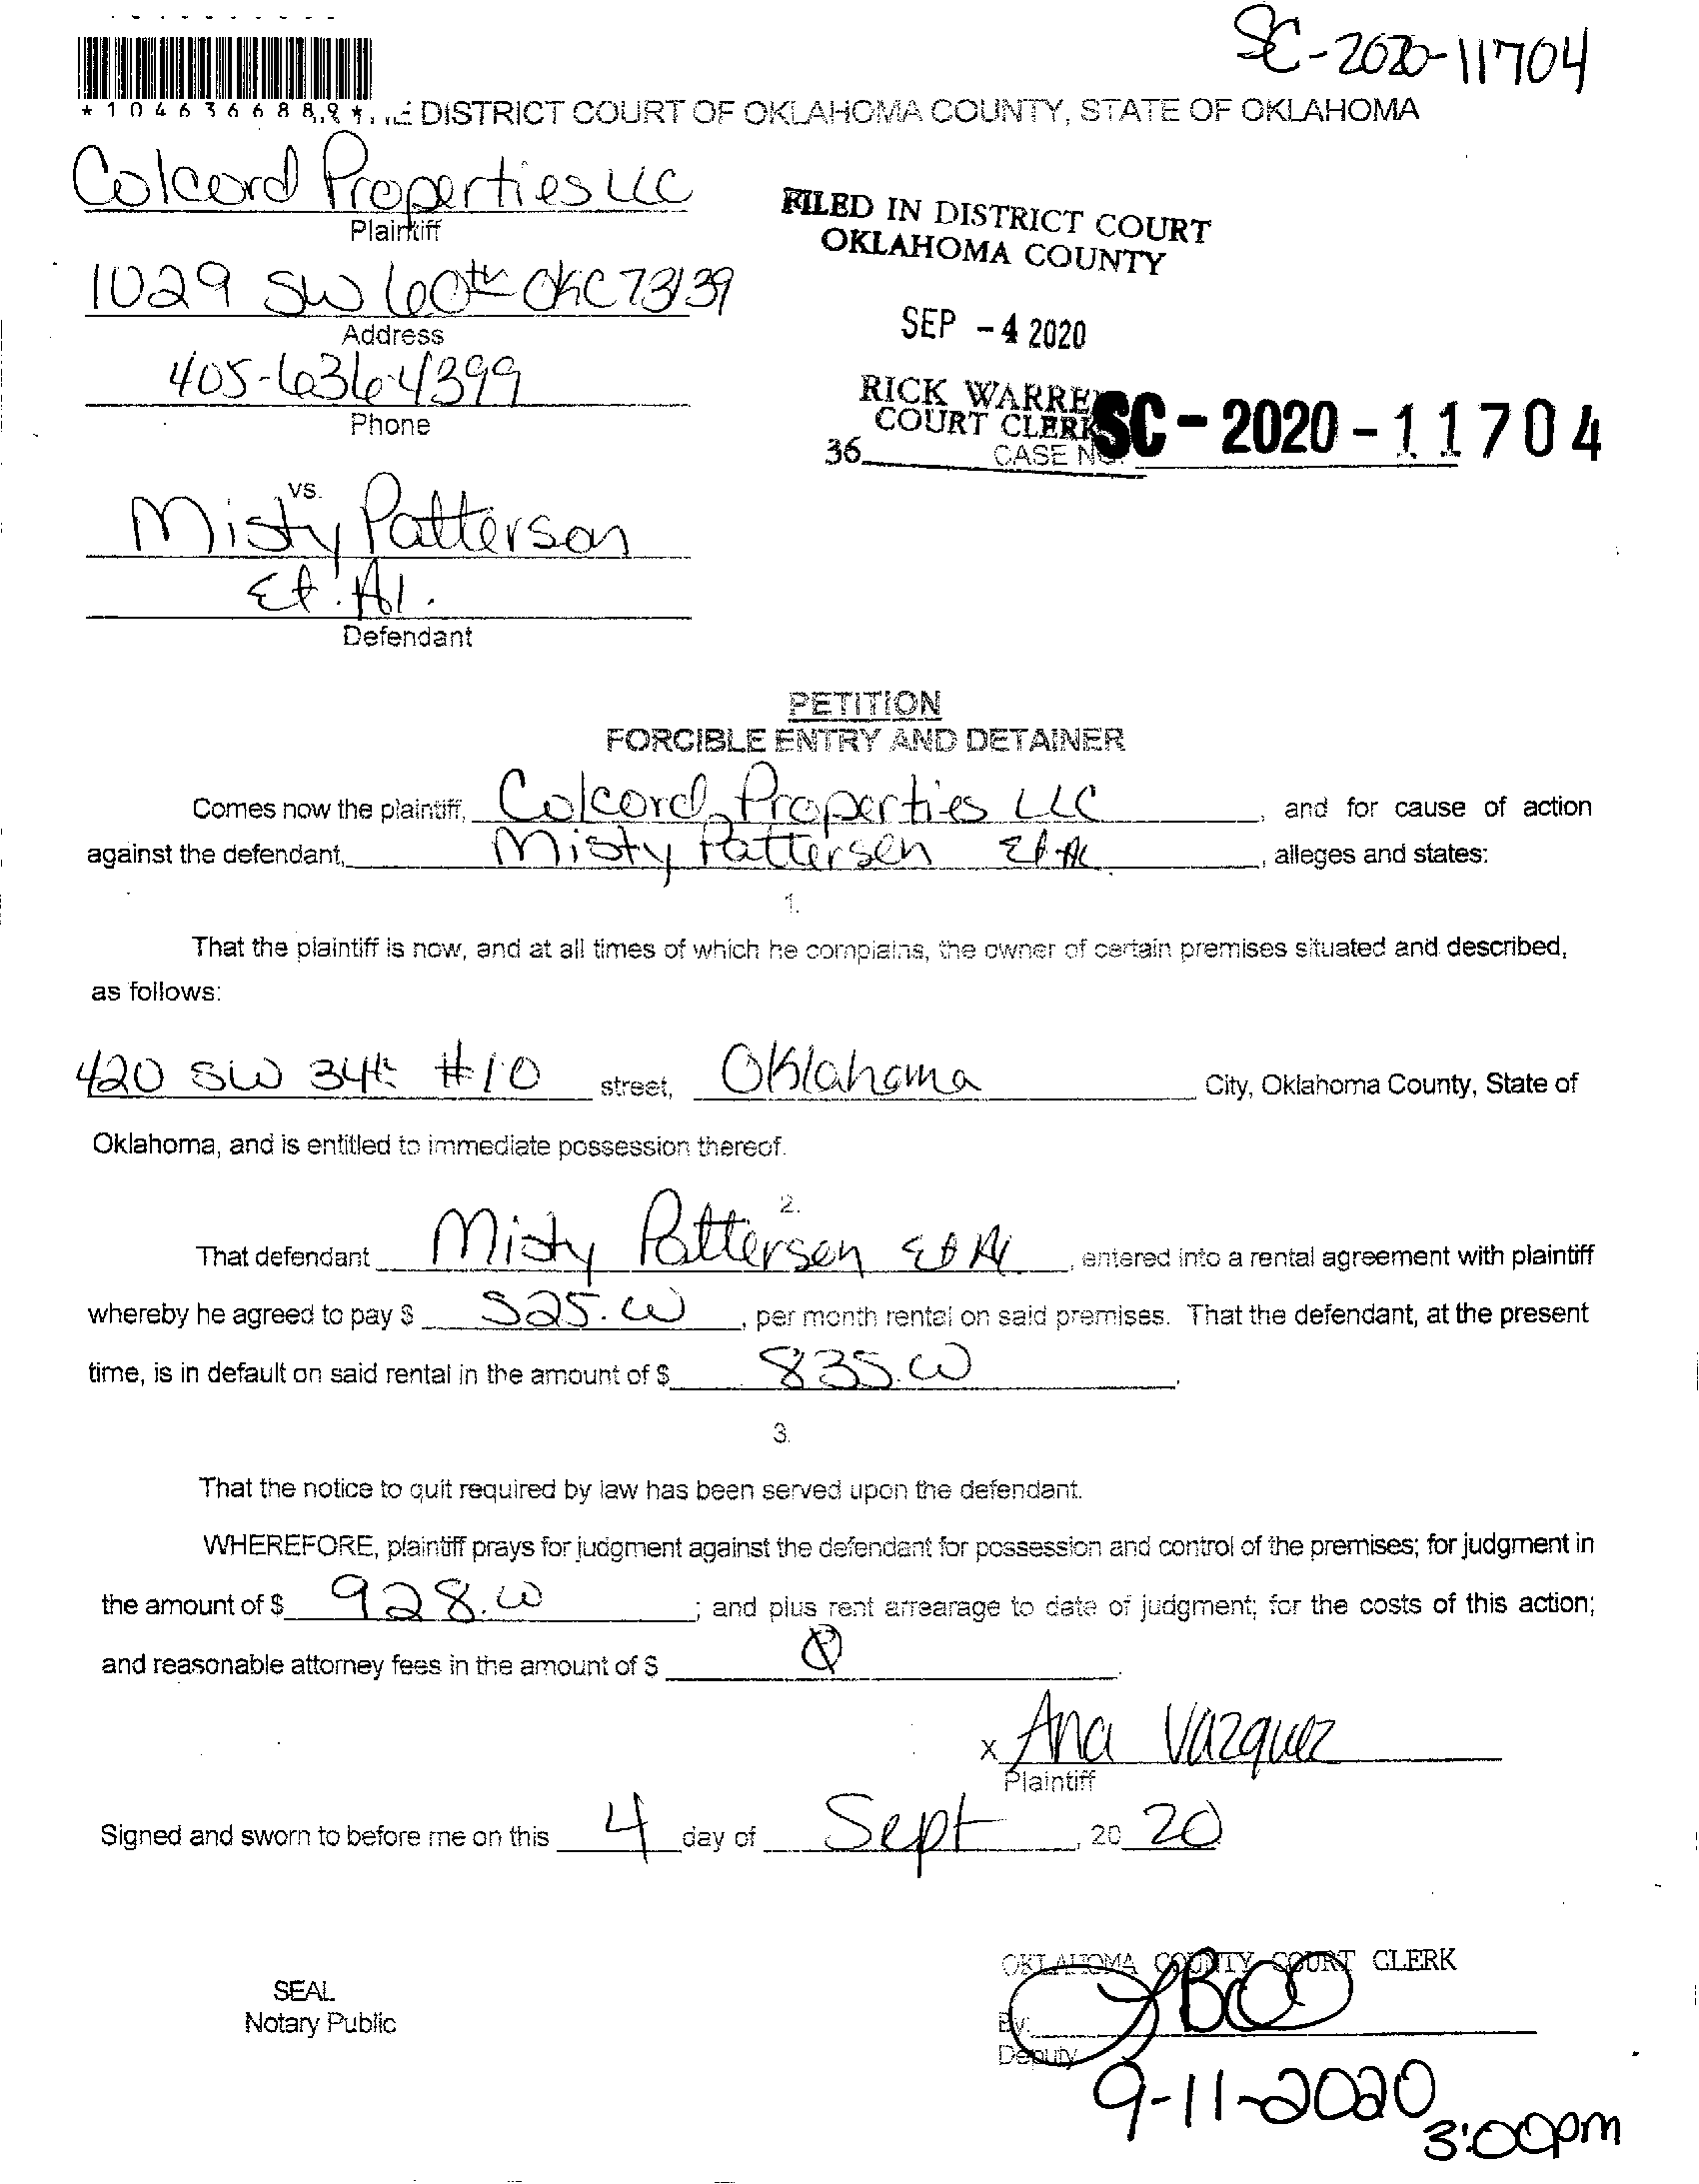 SC-2020-11704
*1046366889*
DISTRICT COURT OF OKLAHOMA COUNTY, STATE OF OKLAHOMA
Colcord Properties LLC
Plaintiff
1029 SW 60th OKC 73139
Address
405-636-4399
Phone
FILED IN DISTRICT COURT
OKLAHOMA COUNTY
SEP -4 2020
RICK WARREN
COURT CLERK
36
CASE NO. SC-2020-11704
vs.
Misty Patterson
Et. Al.
Defendant
PETITION
FORCIBLE ENTRY AND DETAINER
Comes now the plaintiff, Colcord Properties LLC, and for cause of action
against the defendant, Misty Patterson Et Al, alleges and states:
1.
That the plaintiff is now, and at all times of which he complains, the owner of certain premises situated and described,
as follows:
420 SW 34th #10 street, Oklahoma City, Oklahoma County, State of
Oklahoma, and is entitled to immediate possession thereof.
2.
That defendant Misty Patterson Et Al, entered into a rental agreement with plaintiff
whereby he agreed to pay $ 525.00, per month rental on said premises. That the defendant, at the present
time, is in default on said rental in the amount of $ 835.00.
3.
That the notice to quit required by law has been served upon the defendant.
WHEREFORE, plaintiff prays for judgment against the defendant for possession and control of the premises; for judgment in
the amount of $ 928.00; and plus rent arrearage to date of judgment; for the costs of this action;
and reasonable attorney fees in the amount of $
x Ana Vazquez
Plaintiff
Signed and sworn to before me on this 4 day of Sept, 20 20
SEAL
Notary Public
OKLAHOMA COUNTY COURT CLERK
By:
Deputy
9-11-2020
3:00pm